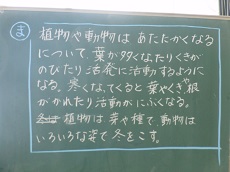 ま 植物や動物は あたたかくなる
について、葉が多くなったりくきが
のびたり 活発に活動するように
なる。寒くなってくると 葉やくきや根
がかれたり活動がにぶくなる。
植物は 芽や種で、動物は
いろいろな姿で冬をこす。